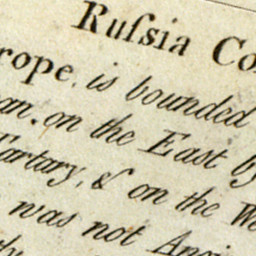 Ruſsia Co
rope, is bounded
an. on the East by
Tartary, & on the We
was not Anci